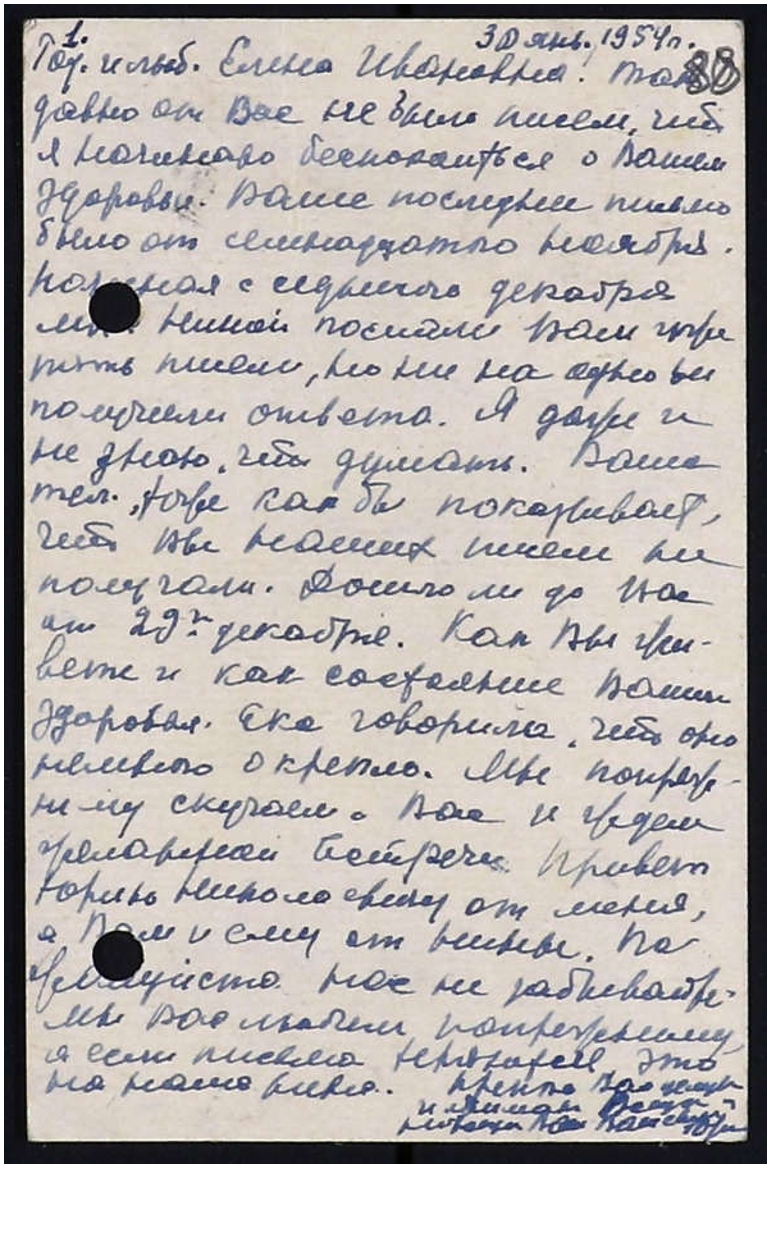 1.
30 янв. 1954г.
88
Дор. и люб. Елена Ивановна! Так
давно от Вас не было писем, что
я начинаю беспокоиться о Вашем
здоровьи. Ваше последнее письмо
было от семнадцатого ноября.
Начиная с седьмого декабря
мы с Ниной послали Вам уже
пять писем, но ни на одно не
получили ответа. Я даже и
не знаю, что думать. Ваша
тел. тоже как бы показывает,
что Вы наших писем не
получали. Дошло ли до Вас
от 29го декабря. Как Вы жи-
вете и как состояние Вашего
здоровья. Ека говорила, что оно
немного окрепло. Мы попреж-
нему скучаем о Вас и ждем
желанной встречи. Привет
Юрию Николаевичу от меня,
а Вам и ему от Нины. По
жалуйста нас не забывайте
мы Вас любим попрежнему,
а если письма теряются это
не наша вина. Крепко Вас целую
и обнимаю
Ваш